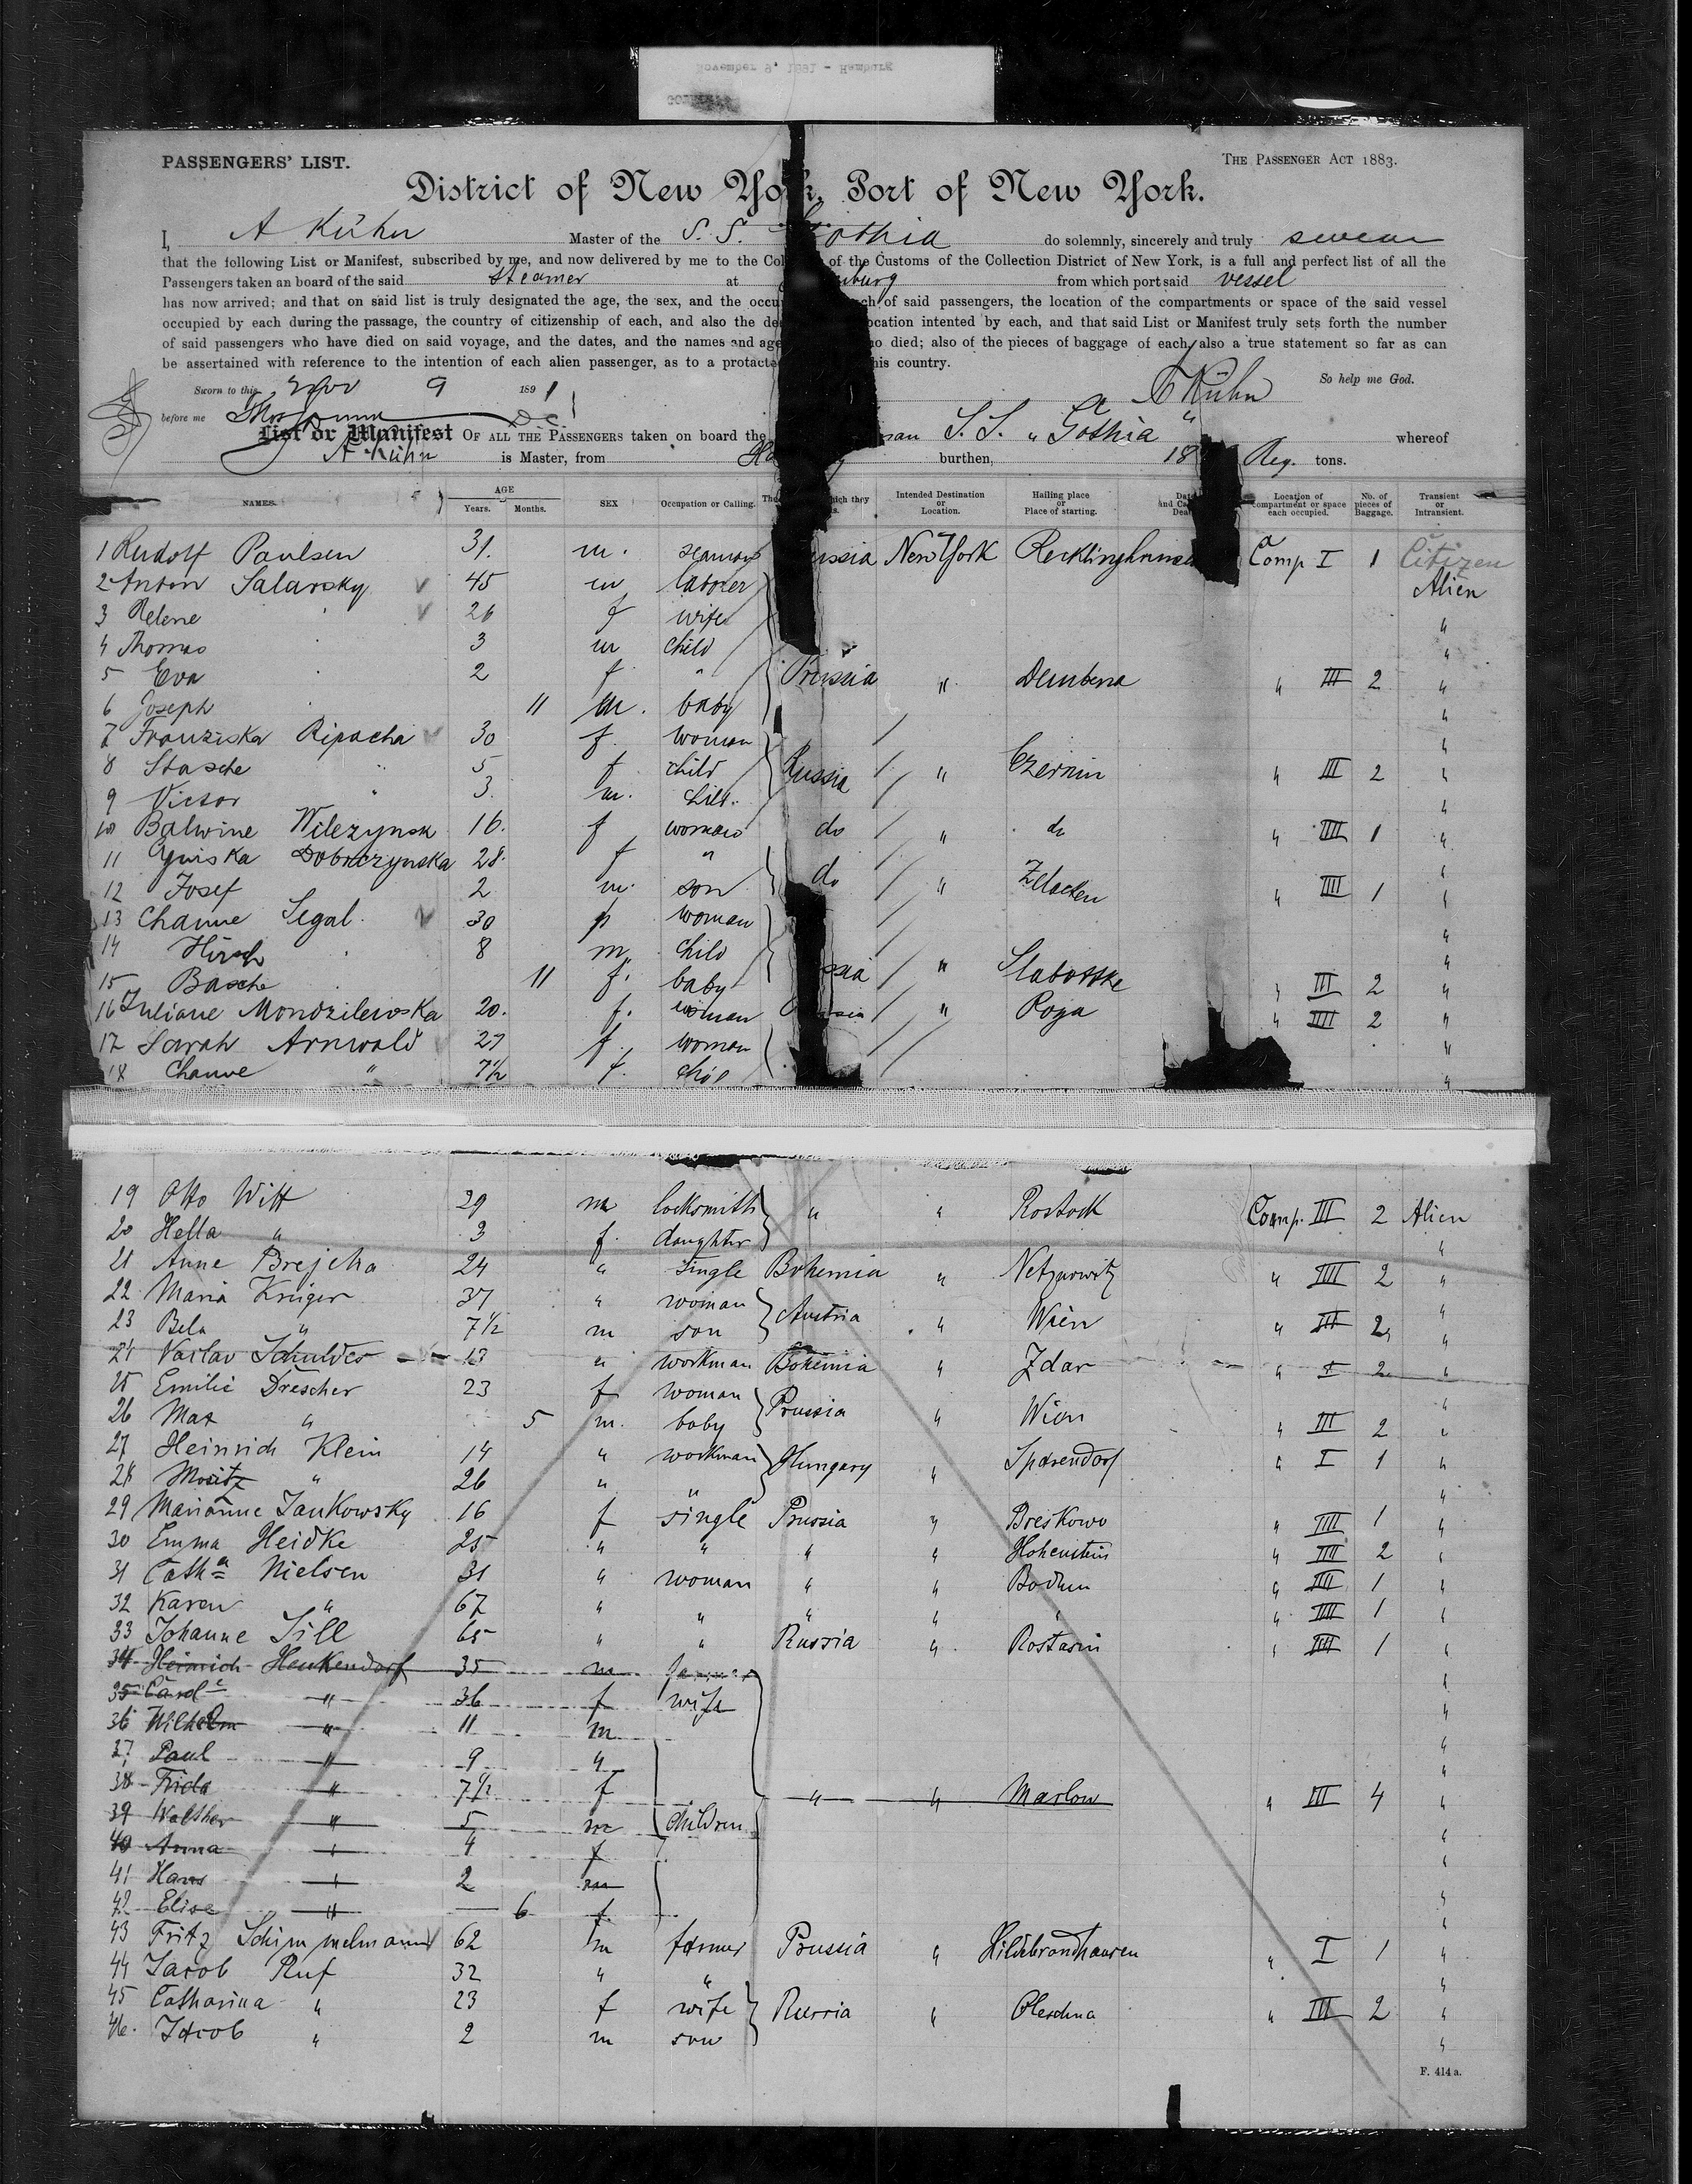 November 9, 1891 - Hamburg
PASSENGERS' LIST.
THE PASSENGER ACT 1883.
District of New York, Port of New York.
I, A Kühn Master of the S. S. Gothia do solemnly, sincerely and truly swear
that the following List or Manifest, subscribed by me, and now delivered by me to the Col of the Customs of the Collection District of New York, is a full and perfect list of all the
Passengers taken an board of the said steamer at burg from which port said vessel
has now arrived; and that on said list is truly designated the age, the sex, and the occu ch of said passengers, the location of the compartments or space of the said vessel
occupied by each during the passage, the country of citizenship of each, and also the de ocation intented by each, and that said List or Manifest truly sets forth the number
of said passengers who have died on said voyage, and the dates, and the names and age ho died; also of the pieces of baggage of each, also a true statement so far as can
be assertained with reference to the intention of each alien passenger, as to a protacte his country.
Sworn to this Nov 9 1891 A Kühn So help me God.
before me
List or Manifest OF ALL THE PASSENGERS taken on board the man S. S. "Gothia" whereof
A Kühn is Master, from Ha burthen, 18 Reg. tons.
NAMES. AGE Years. Months. SEX Occupation or Calling. The which they Intended Destination or Location. Hailing place or Place of starting. Dat and Ca Deat Location of compartment or space each occupied. No. of pieces of Baggage. Transient or Intransient.
1 Rudolf Paulsen 31. m. seaman ussia New York Recklinghause Comp I 1 Citizen
2 Anton Salarsky 45 m laborer Alien
3 Helene 26 f wife "
4 Thomas 3 m child "
5 Eva 2 f " Prussia " Dembena " III 2 "
6 Joseph 11 m. baby "
7 Franziska Ripacha 30 f. woman "
8 Stasche " 5 f child Russia " Czernin " III 2 "
9 Victor " 3. m. child. "
10 Balwine Wilezynsk 16. f woman do " do " IIII 1 "
11 Dobrczynska 28. f " "
12 Josef 2 m. son do " " IIII 1 "
13 Channe Segal 30 f woman "
14 Hirsch 8 m child "
15 Basche 11 f. baby ssia " Slabotske " III 2 "
16 Juliane Mondzilewska 20. f. woman ssia " Roga " IIII 2 "
17 Sarah Arnwald 27 f. woman "
18 Channe " 7½ f. chil "
19 Otto Witt 29 m locksmith " " Rostock Comp. III 2 Alien
20 Hella " 3 f. daughter "
21 Anne Brejcha 24 " single Bohemia " Netznowitz " IIII 2 "
22 Maria Krüger 37 " woman "
23 Bela " 7½ m son Austria " Wien " III 2 "
24 Vaclav Schuldes 13 " workman Bohemia " Zdar " I 2 "
25 Emilie Drescher 23 f woman "
26 Max " 5 m. baby Prussia " Wien " III 2 "
27 Heinrich Klein 14 " workman Hungary " Sparendorf " I 1 "
28 Moritz " 26 " " "
29 Marianne Jankowsky 16 f single Prussia " Breskowo " IIII 1 "
30 Emma Heidke 25 " " " " Hohenstein " IIII 2 "
31 Catha Nielsen 31 " woman " " Bodum " IIII 1 "
32 Karen " 67 " " " " " " IIII 1 "
33 Johanne Sill 65 " " Russia " Rostarin " IIII 1 "
34 Heinrich Henkendorf 35 m farmer
35 Card e " 36 f wife "
36 Wilhelm " 11 m "
37 Paul " 9 " "
38 Frida " 7½ f " " Marlow " III 4 "
39 Walther " 5 m children "
40 Anna " 4 f "
41 Hans " 2 m "
42 Elise " 6 f. "
43 Fritz Schimmelmann 62 m farmer Prussia " Hildebrandhausen " I 1 "
44 Jacob Ruf 32 " " "
45 Catharina " 23 f wife Russia " Oleschna " III 2 "
46. Jacob " 2 m son "
F. 414 a.